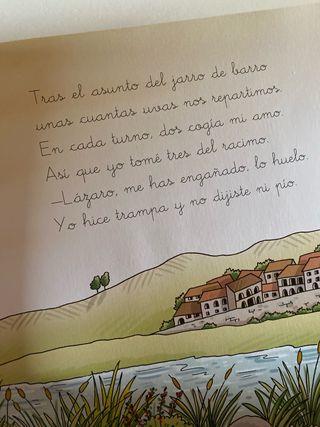 Tras el asunto del jarro de barro
unas cuantas uvas nos repartimos.
En cada turno, dos cogía mi amo.
Así que yo tomé tres del racimo.
—Lázaro, me has engañado, lo huelo.
Yo hice trampa y no dijiste ni pío.